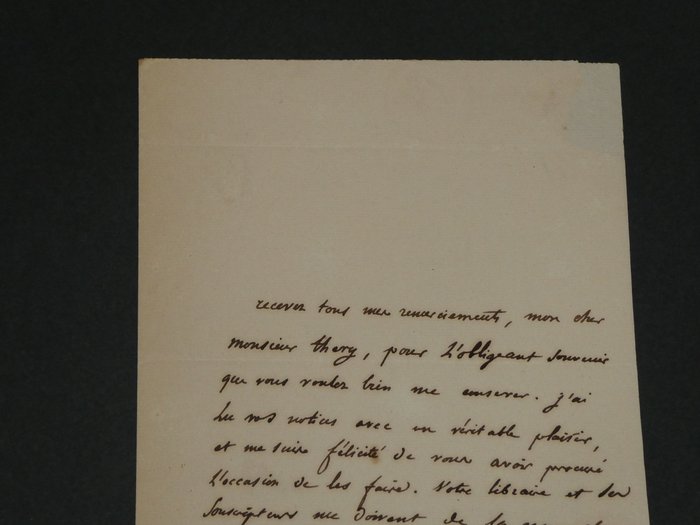 recevez tous mes remerciements, mon cher
monsieur thery, pour L'obligeant souvenir
que vous voulez bien me conserver. j'ai
lu vos notices avec un véritable plaisir,
et me suis félicité de vous avoir procuré
L'occasion de les faire. Votre libraire et ses
souscripteurs me doivent de la